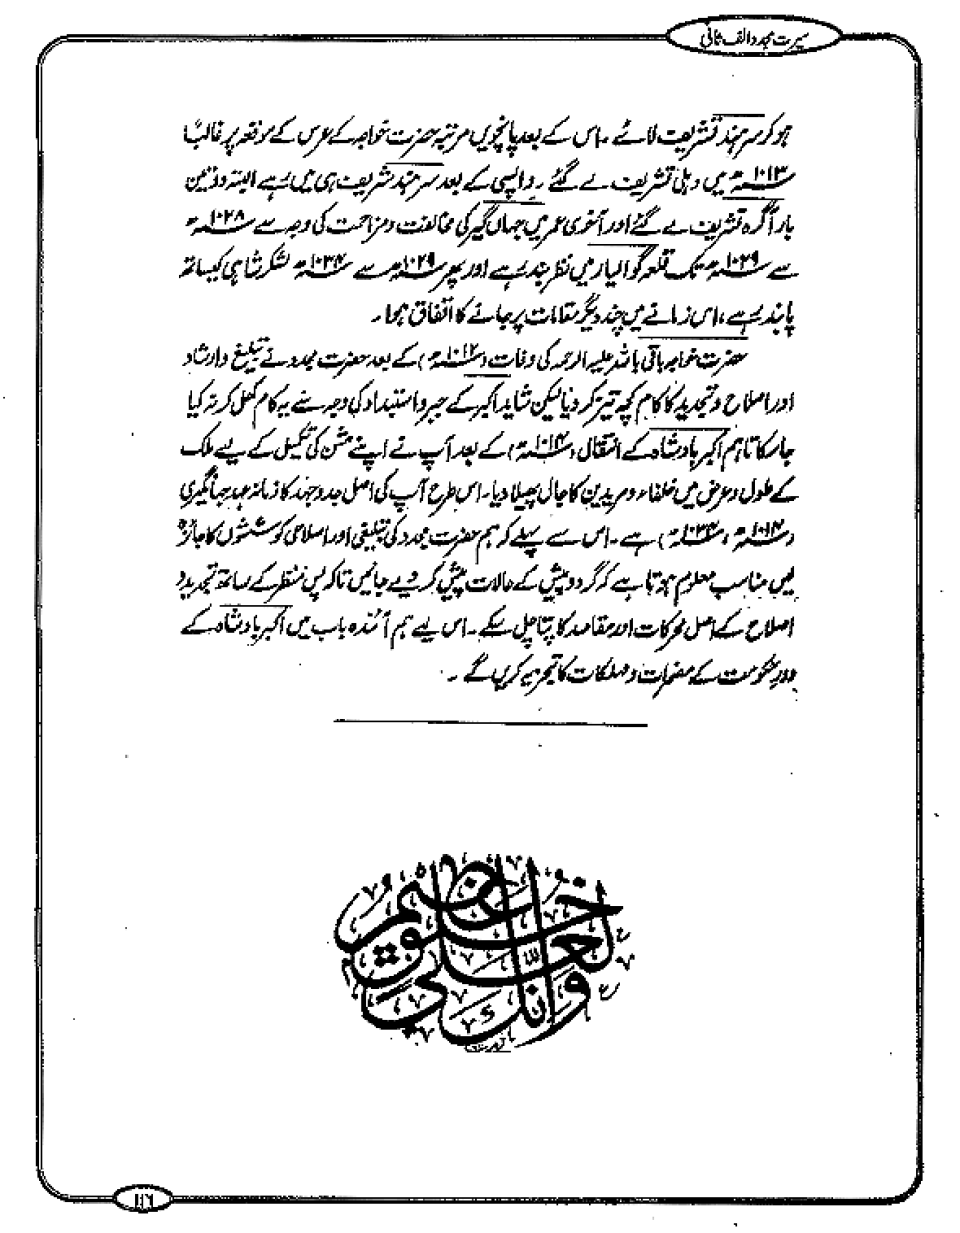 سیرت مجدد الف ثانی
ہو کر سرہند تشریف لائے ۔ اس کے بعد پانچویں مرتبہ حضرت خواجہ کے عرس کے موقعہ پر غالباً
۱۰۱۳ھ میں دہلی تشریف لے گئے ۔ واپسی کے بعد سرہند شریف ہی میں رہے البتہ دو تین
بار آگرہ تشریف لے گئے اور آخری عمر میں جہاں گیر کی مخالفت و مزاحمت کی وجہ سے ۱۰۲۸ھ
سے ۱۰۲۹ھ تک قلعہ گوالیار میں نظر بند رہے اور پھر ۱۰۲۹ھ سے ۱۰۳۴ھ لشکر شاہی کیساتھ
پابند رہے، اس زمانے میں چند دیگر مقامات پر جانے کا اتفاق ہوا ۔
حضرت خواجہ باقی باللہ علیہ الرحمہ کی وفات (۱۰۱۲ھ) کے بعد حضرت مجدد نے تبلیغ و ارشاد
اور اصلاح و تجدید کا کام کچھ تیز کر دیا لیکن شاید اکبر کے جبر و استبداد کی وجہ سے یہ کام کھل کر نہ کیا
جا سکا تاہم اکبر بادشاہ کے انتقال (۱۰۱۴ھ) کے بعد آپ نے اپنے مشن کی تکمیل کے لیے ملک
کے طول و عرض میں خلفاء و مریدین کا جال پھیلا دیا ۔ اس طرح آپ کی اصل جدوجہد کا زمانہ عہد جہانگیری
(۱۰۱۴ھ، ۱۰۳۴ھ) ہے ۔ اس سے پہلے کہ ہم حضرت مجدد کی تبلیغی اور اصلاحی کوششوں کا جائزہ
لیں مناسب معلوم ہوتا ہے کہ گرد و پیش کے حالات پیش کر دیے جائیں تاکہ پس منظر کے ساتھ تجدید و
اصلاح کے اصل محرکات اور مقاصد کا پتا چل سکے ۔ اس لیے ہم آئندہ باب میں اکبر بادشاہ کے
دورِ حکومت کے مضمرات و مہلکات کا تجزیہ کریں گے ۔
وَإِنَّكَ لَعَلَىٰ خُلُقٍ عَظِيمٍ
۱۱۶